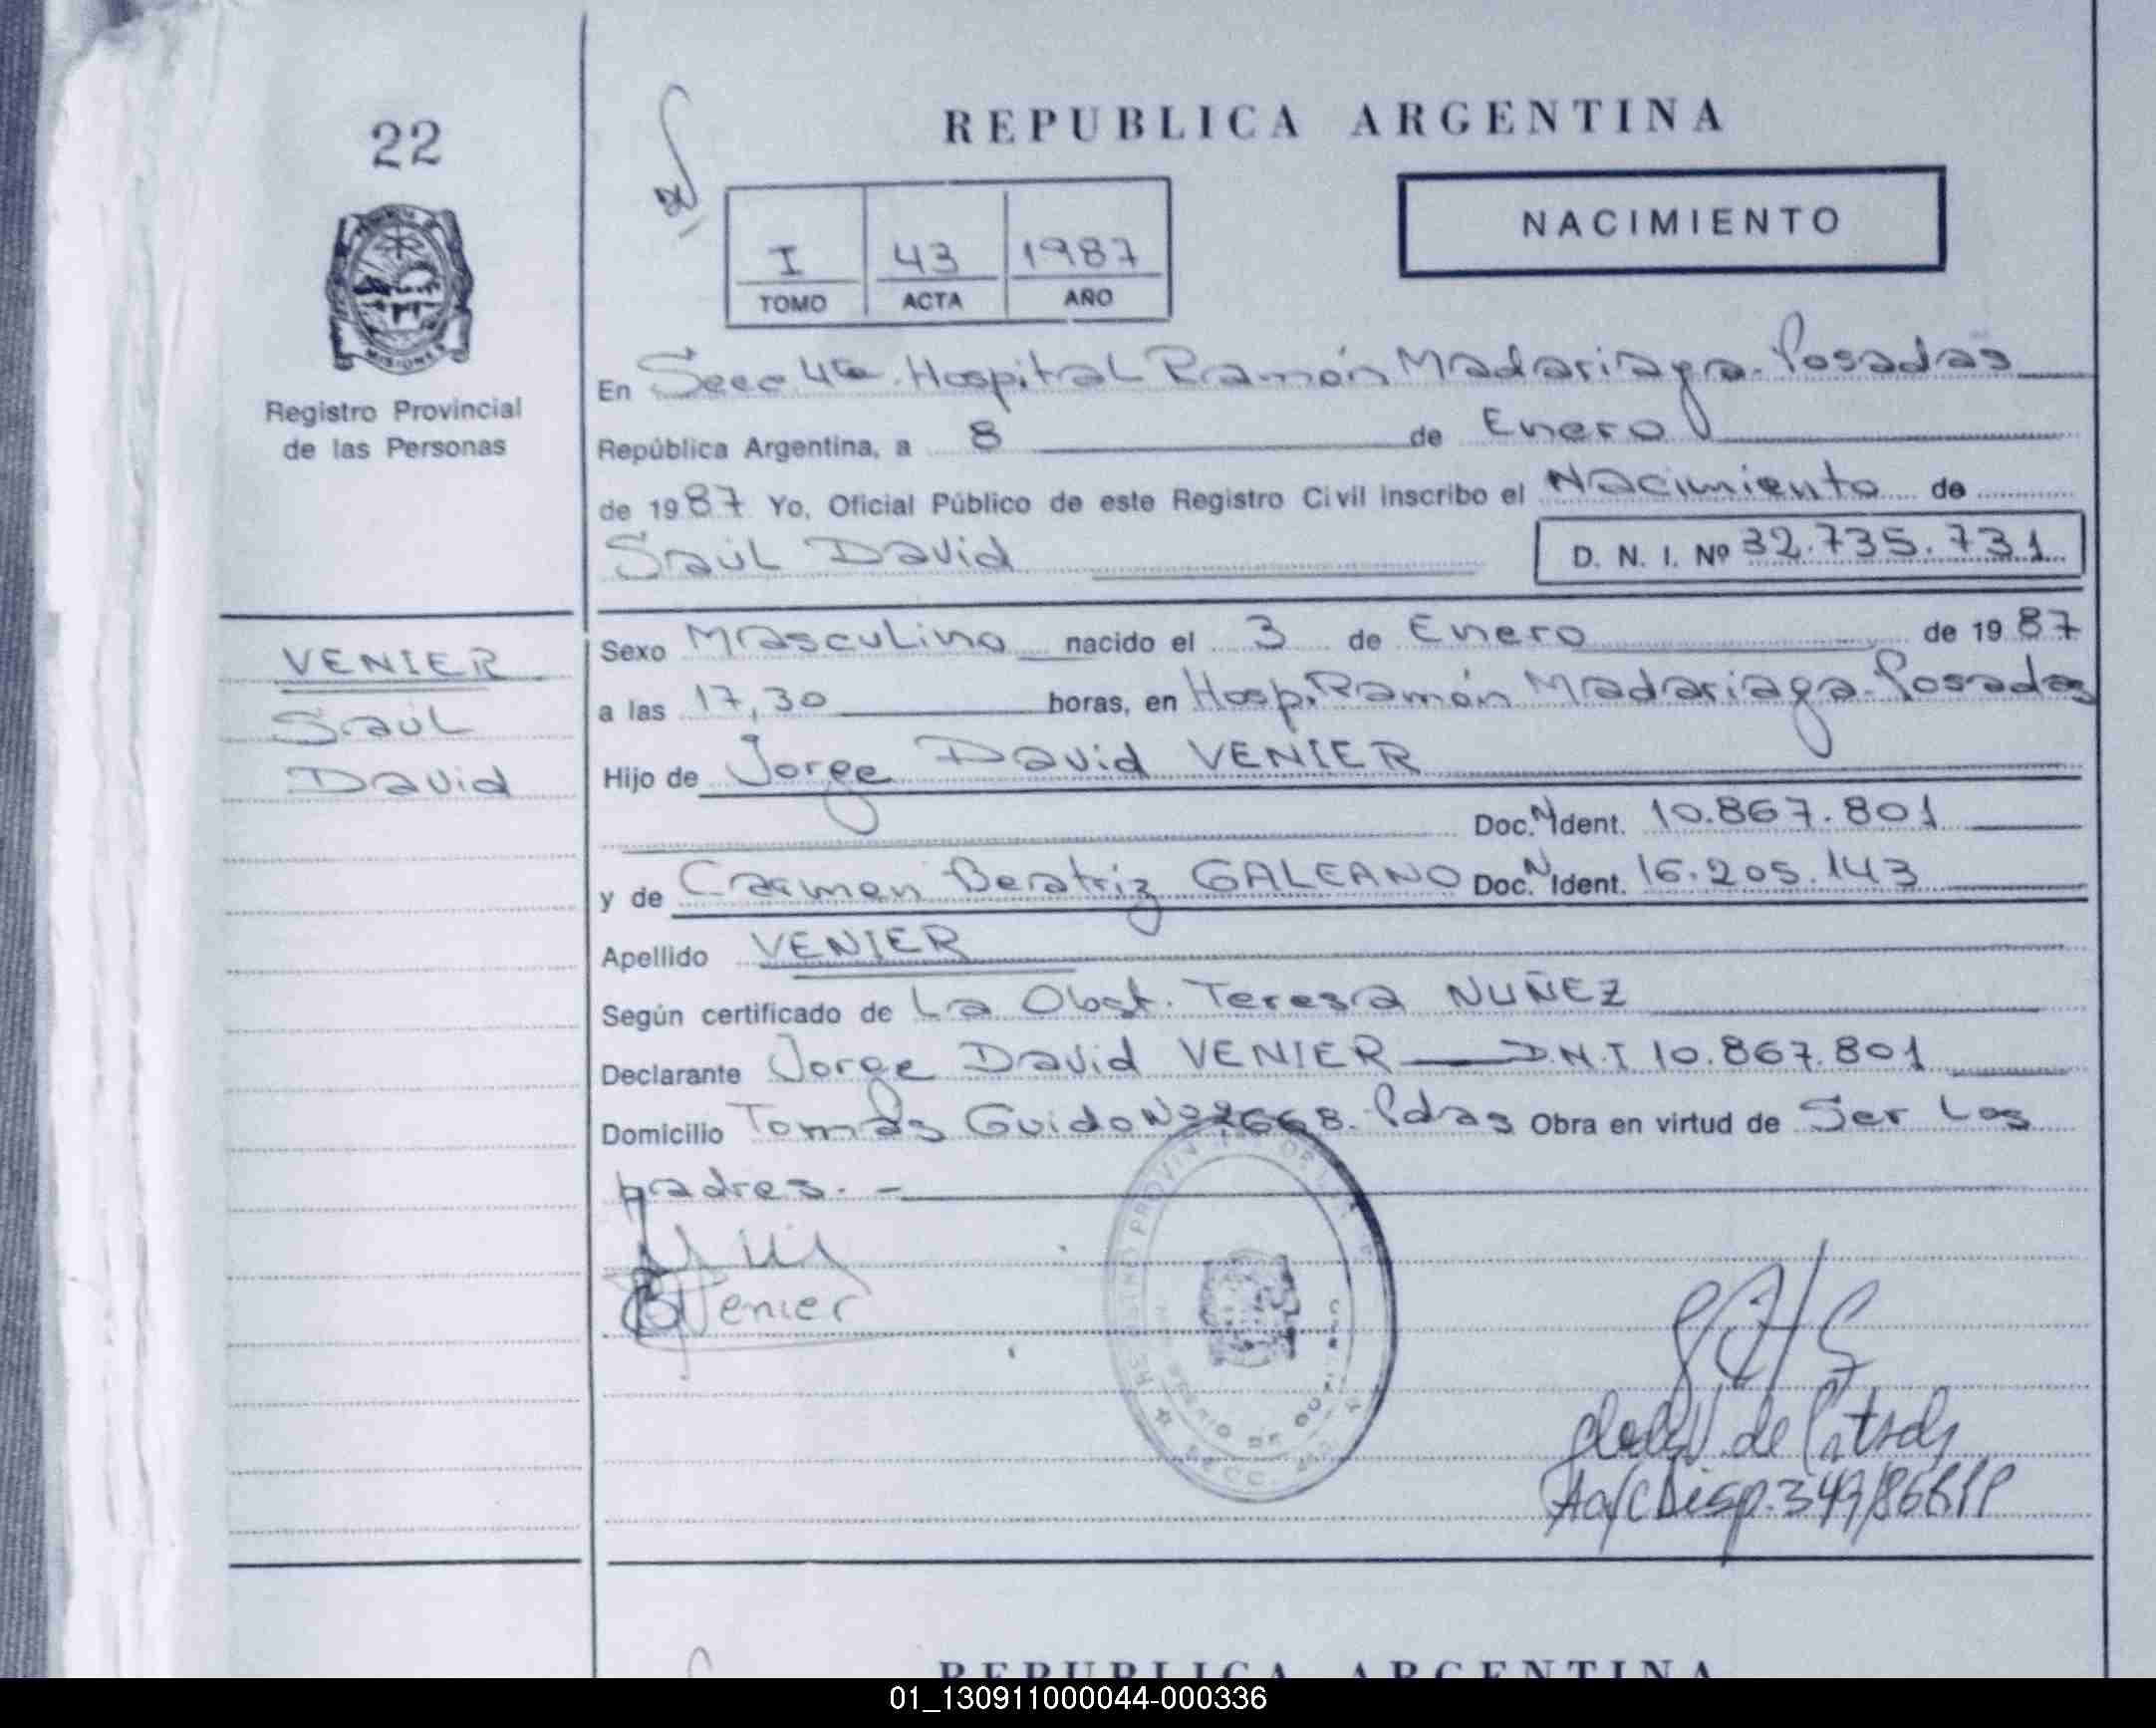 22
REPUBLICA ARGENTINA
NACIMIENTO
I 43 1987
TOMO ACTA AÑO
MISIONES
Registro Provincial
de las Personas
En Secc 4ta. Hospital Ramón Madariaga. Posadas
República Argentina, a 8 de Enero
de 1987 Yo, Oficial Público de este Registro Civil inscribo el Nacimiento de
Saúl David D. N. I. Nº 32.735.731
VENIER
Saúl
David
Sexo Masculino nacido el 3 de Enero de 1987
a las 17,30 horas, en Hosp. Ramón Madariaga. Posadas
Hijo de Jorge David VENIER
Doc. N Ident. 10.867.801
y de Carmen Beatriz GALEANO Doc. N Ident. 16.205.143
Apellido VENIER
Según certificado de La Obst. Teresa NUÑEZ
Declarante Jorge David VENIER D.N.I 10.867.801
Domicilio Tomás Guido Nº 2668. Pdas Obra en virtud de Ser Los
padres. -
Venier
SECC. DE
de
A/C Disp. 349/86
REPUBLICA ARGENTINA
01_130911000044-000336